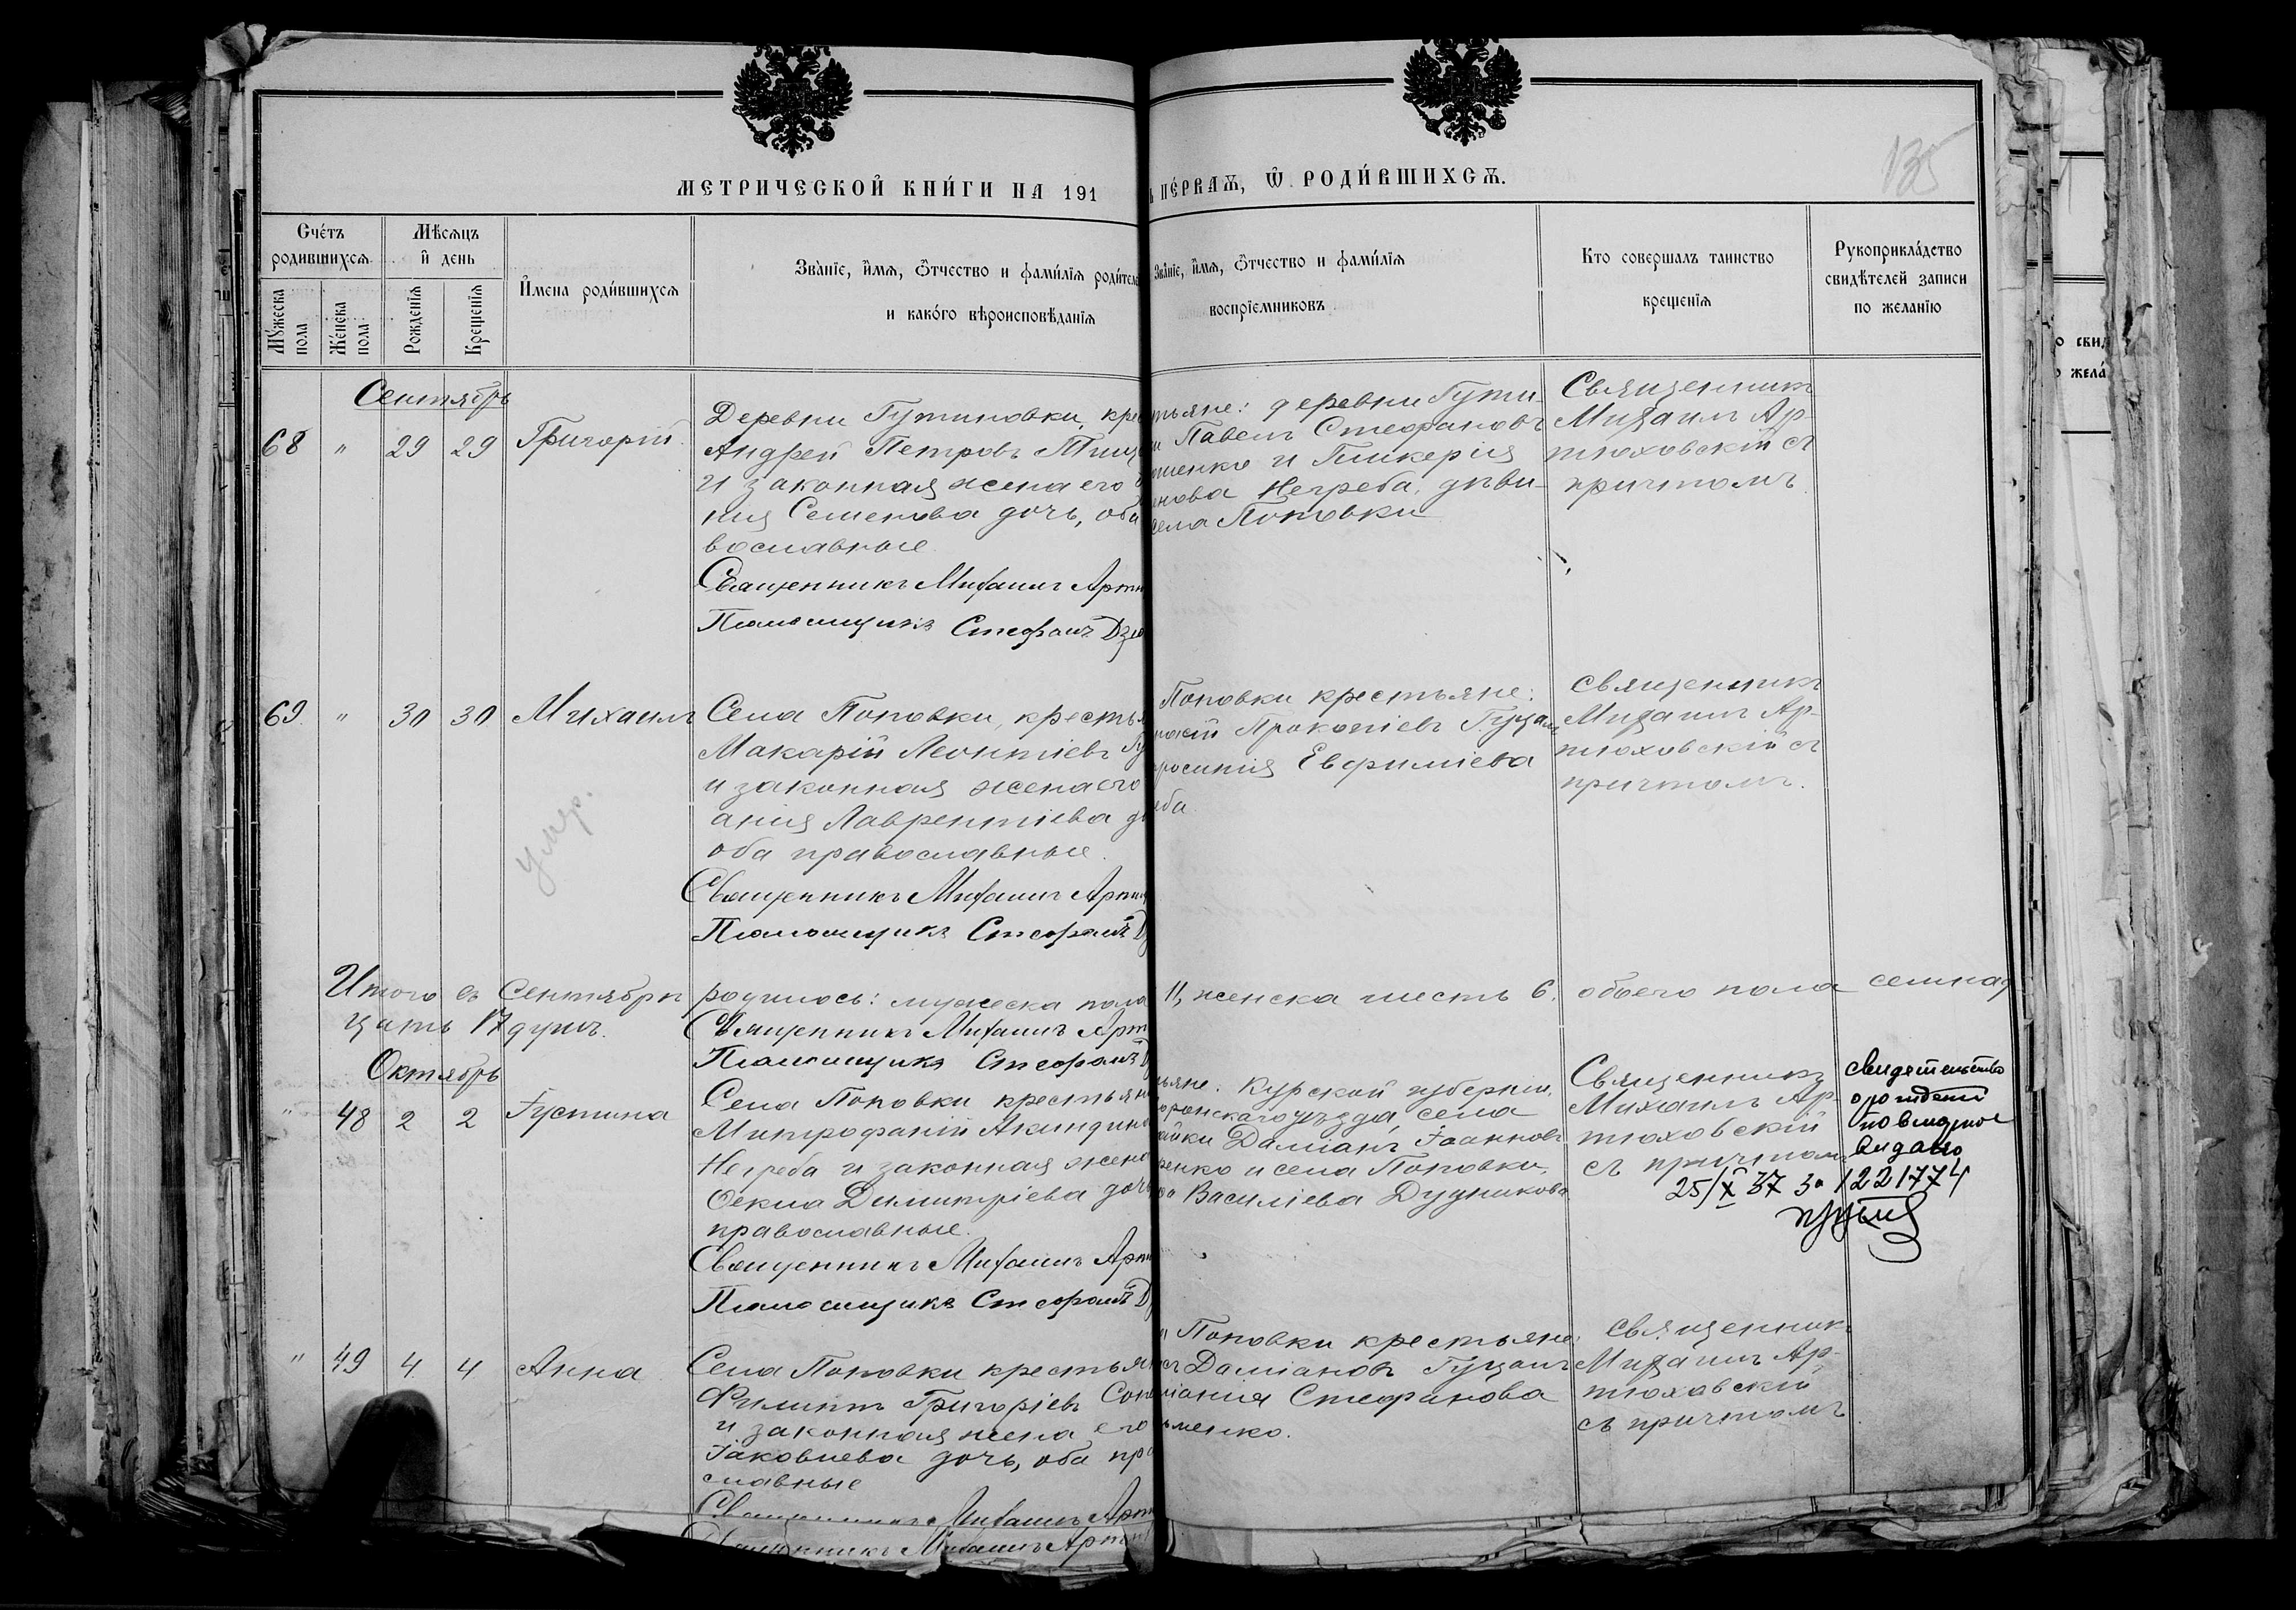 135
МЕТРИЧЕСКОЙ КНИ́ГИ НА 191
ПЕ́РВАѦ, Ѿ РОДИ́ВШИХСѦ.
Сче́тъ родившихсѧ
Мѣсѧцъ и҆ день
И҆мена роди́вшихсѧ
Зва́нїе, и҆́мѧ, ѻ҆́тчество и фами́лїѧ родителе
и како́го вѣроисповѣ́данїѧ
Зва́нїе, и҆́мѧ, ѻ҆́тчество и фами́лїѧ
воспрїемниковъ
Кто совершалъ таинство
крещенїѧ
Рукоприкла́дство
свидѣтелей записи
по желанїю
Мꙋжеска пола
Же́нска пола
Рожденїѧ
Крещенїѧ
Сентябрь
68 " 29 29 Григорій
Деревни Гутиновки, кре
Андрей Петровъ Тищ
и законная жена его
нія Семенова дочь, оба
вославные
Священникъ Михаилъ Артю
Псаломщикъ Стефанъ Дзю
тьяне: деревни Гути-
Павелъ Стефановъ
шенко и Гликерія
енова Негреба, дѣви-
села Поповки
Священникъ
Михаилъ Ар-
тюховскій съ
причтомъ
69 " 30 30 Михаилъ
умр.
Села Поповки, крестья
Макарій Леонтіевъ Гу
и законная жена его
анія Лаврентіева д
оба православные.
Священникъ Михаилъ Артю
Псаломщикъ Стефанъ Д
Поповки крестьяне:
Прокопіевъ Гуцалъ
росинія Евфиміева
еба.
Священникъ
Михаилъ Ар-
тюховскій съ
причтомъ.
Итого въ Сентябрѣ родилось: мужеска пола 11, женска шесть 6. обоего пола семнад
цать 17 душъ.
Священникъ Михаилъ Арт
Псаломщикъ Стефанъ Д
Октябрь
" 48 2 2 Іустина
Села Поповки крестьян
Митрофаній Акиндино
Негреба и законная жена
Ѳекла Димитріева дочь
православные.
Священникъ Михаилъ Артю
Псаломщикъ Стефанъ Д
ьяне: Курской губерніи,
уѣзда, села
айки Даміанъ Іоанновъ
енко и села Поповки,
Василіева Дудникова
Священникъ
Михаилъ Ар-
тюховскій
съ причтомъ
Свидетельство
о рождении
повидное
видано
25/X 37 за 1221774
" 49 4 4 Анна
Села Поповки крестьян
Филиппъ Григоріевъ Соп
и законная жена его
Іаковлева дочь, оба пра
славные
Священникъ Михаилъ Арт
Священникъ Михаилъ Артю
Поповки крестьяне:
Даміановъ Гуцалъ
Стефанова
ьменко.
Священникъ
Михаилъ Ар-
тюховскій
съ причтомъ